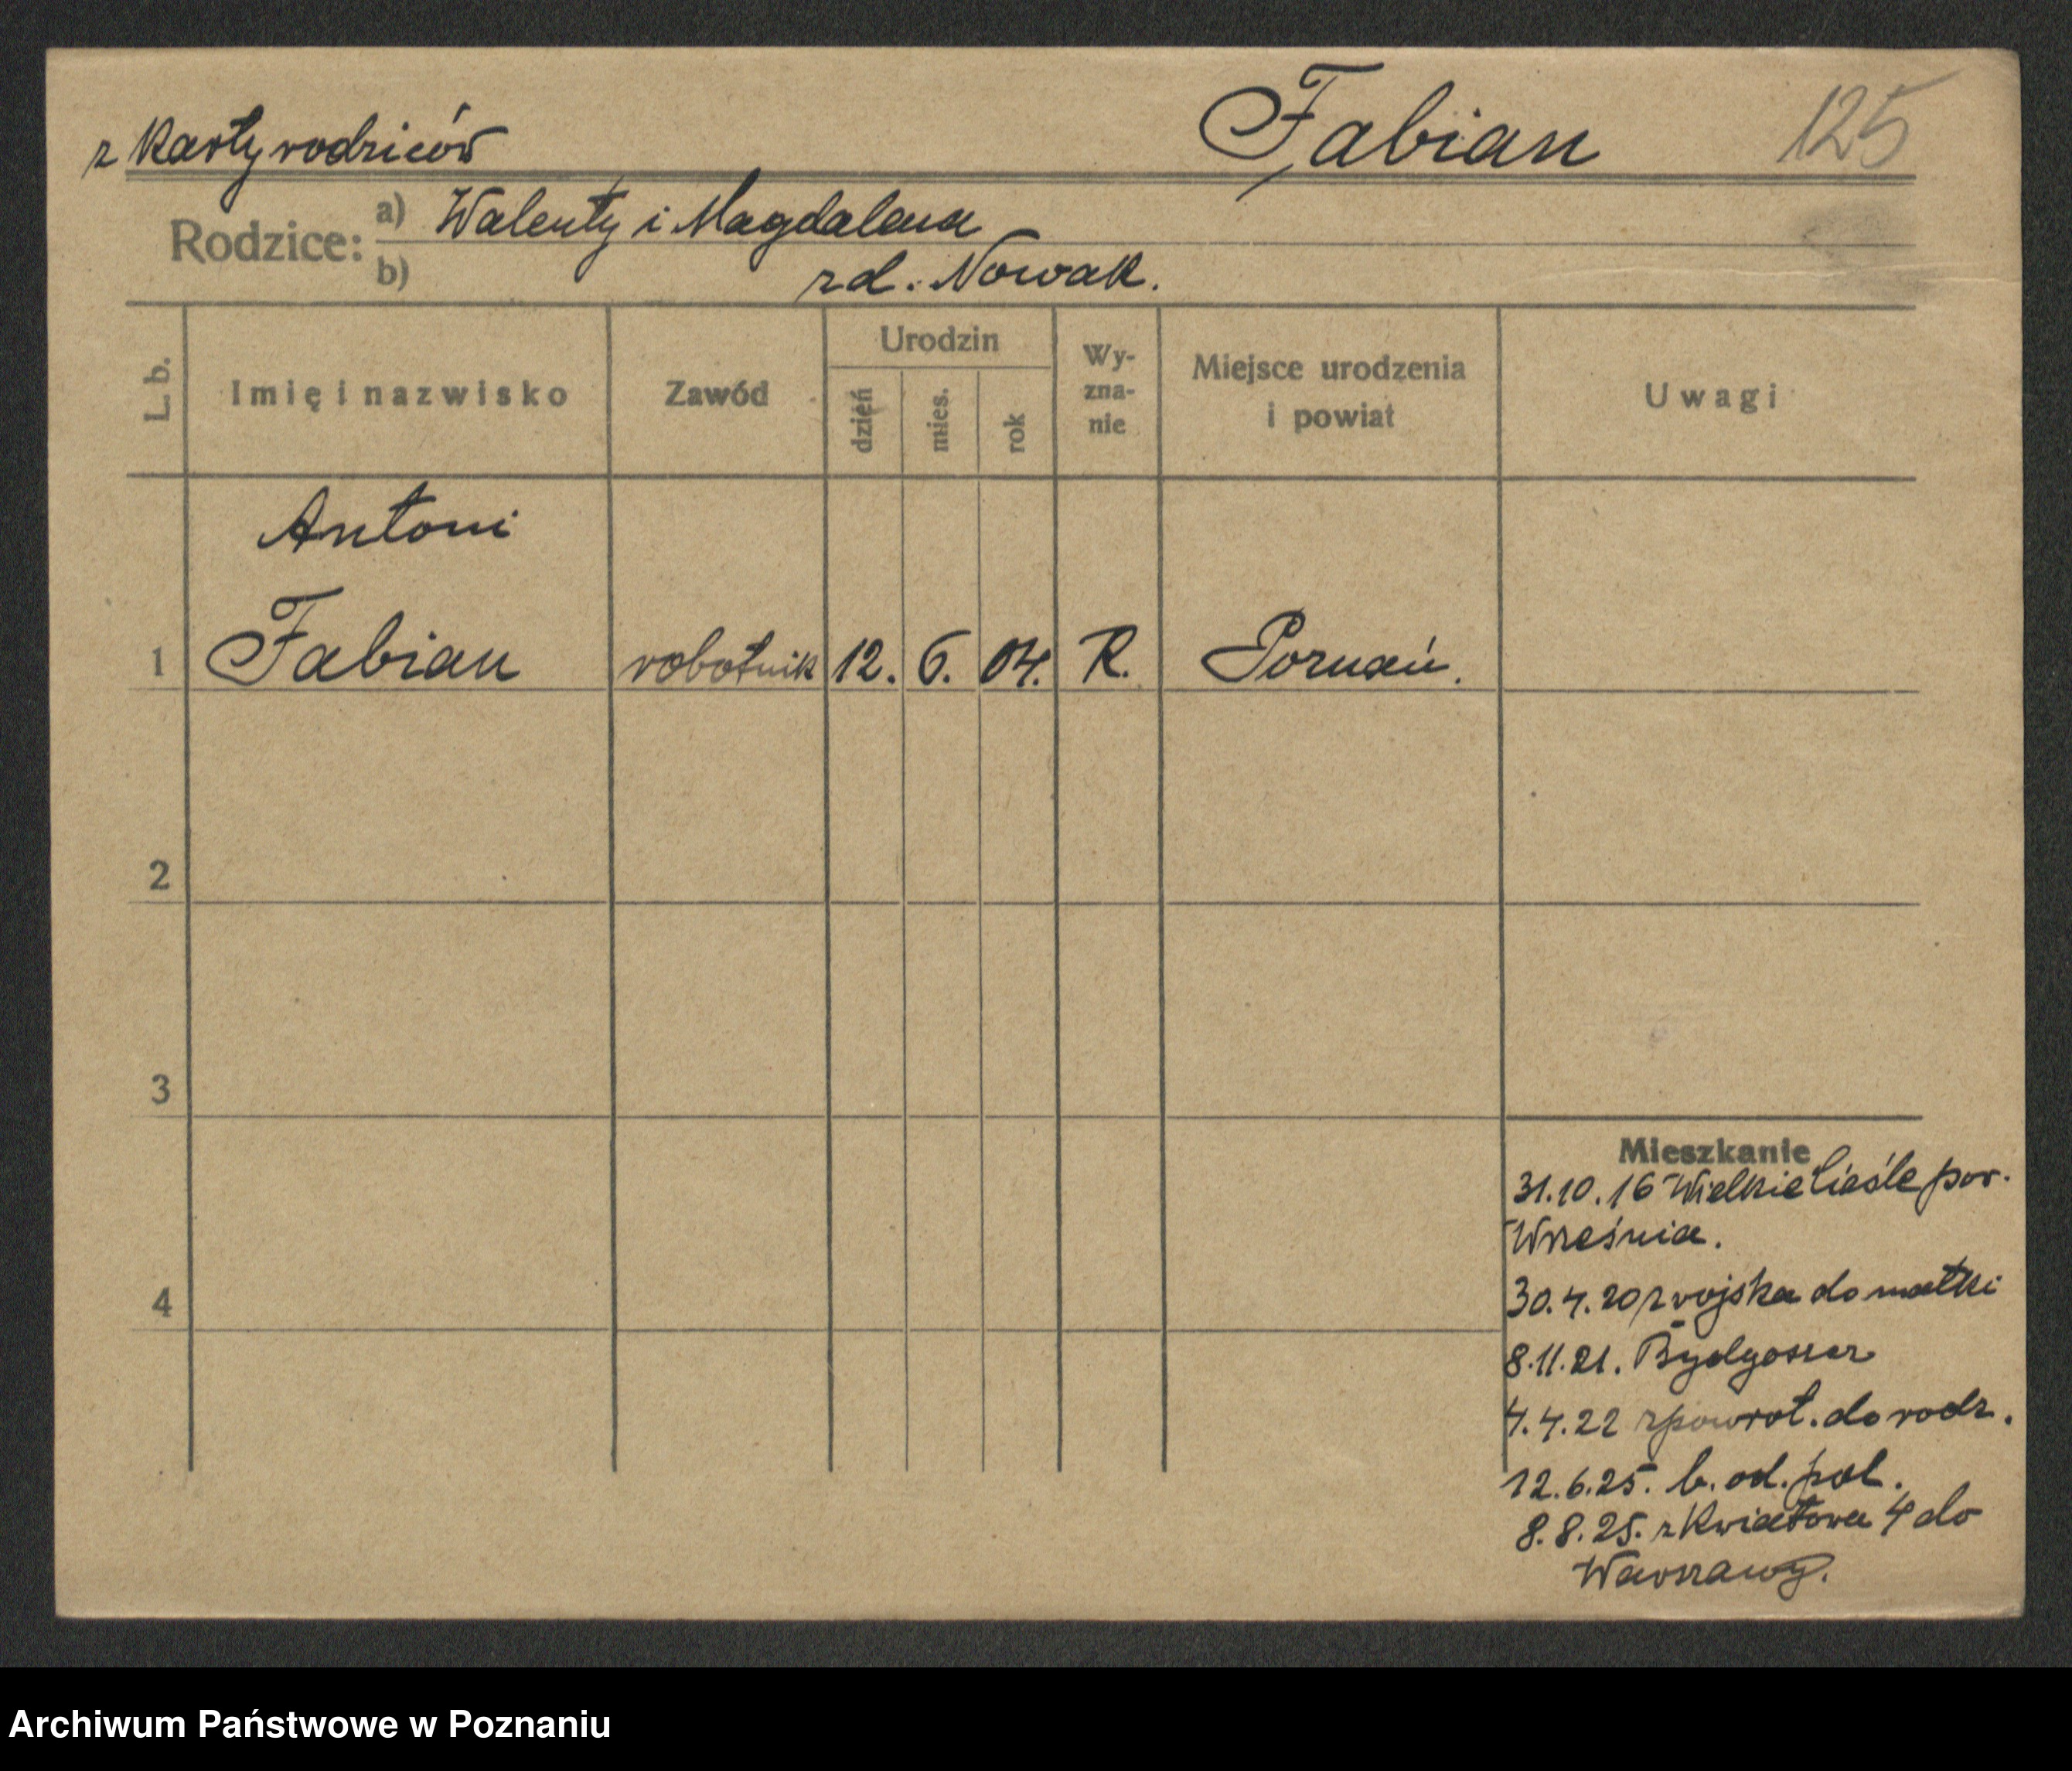 z karty rodziców
Fabian 125
Rodzice: a) Walenty i Magdalena
b) zd. Nowak.
L. b. Imię i nazwisko Zawód Urodzin dzień mies. rok Wy-zna-nie Miejsce urodzenia i powiat Uwagi
Antoni
1 Fabian robotnik 12. 6. 04. R. Poznań.
2
3
4
Mieszkanie
31.10.16 Wielkie pow.
Września.
30.4.20 z wojska do matki
8.11.21. Bydgoszcz
4.4.22 zpowrot. do rodz.
12.6.25. b. od. pol.
8.8.25. z Kwiatowa 4 do
Warszawy.
Archiwum Państwowe w Poznaniu